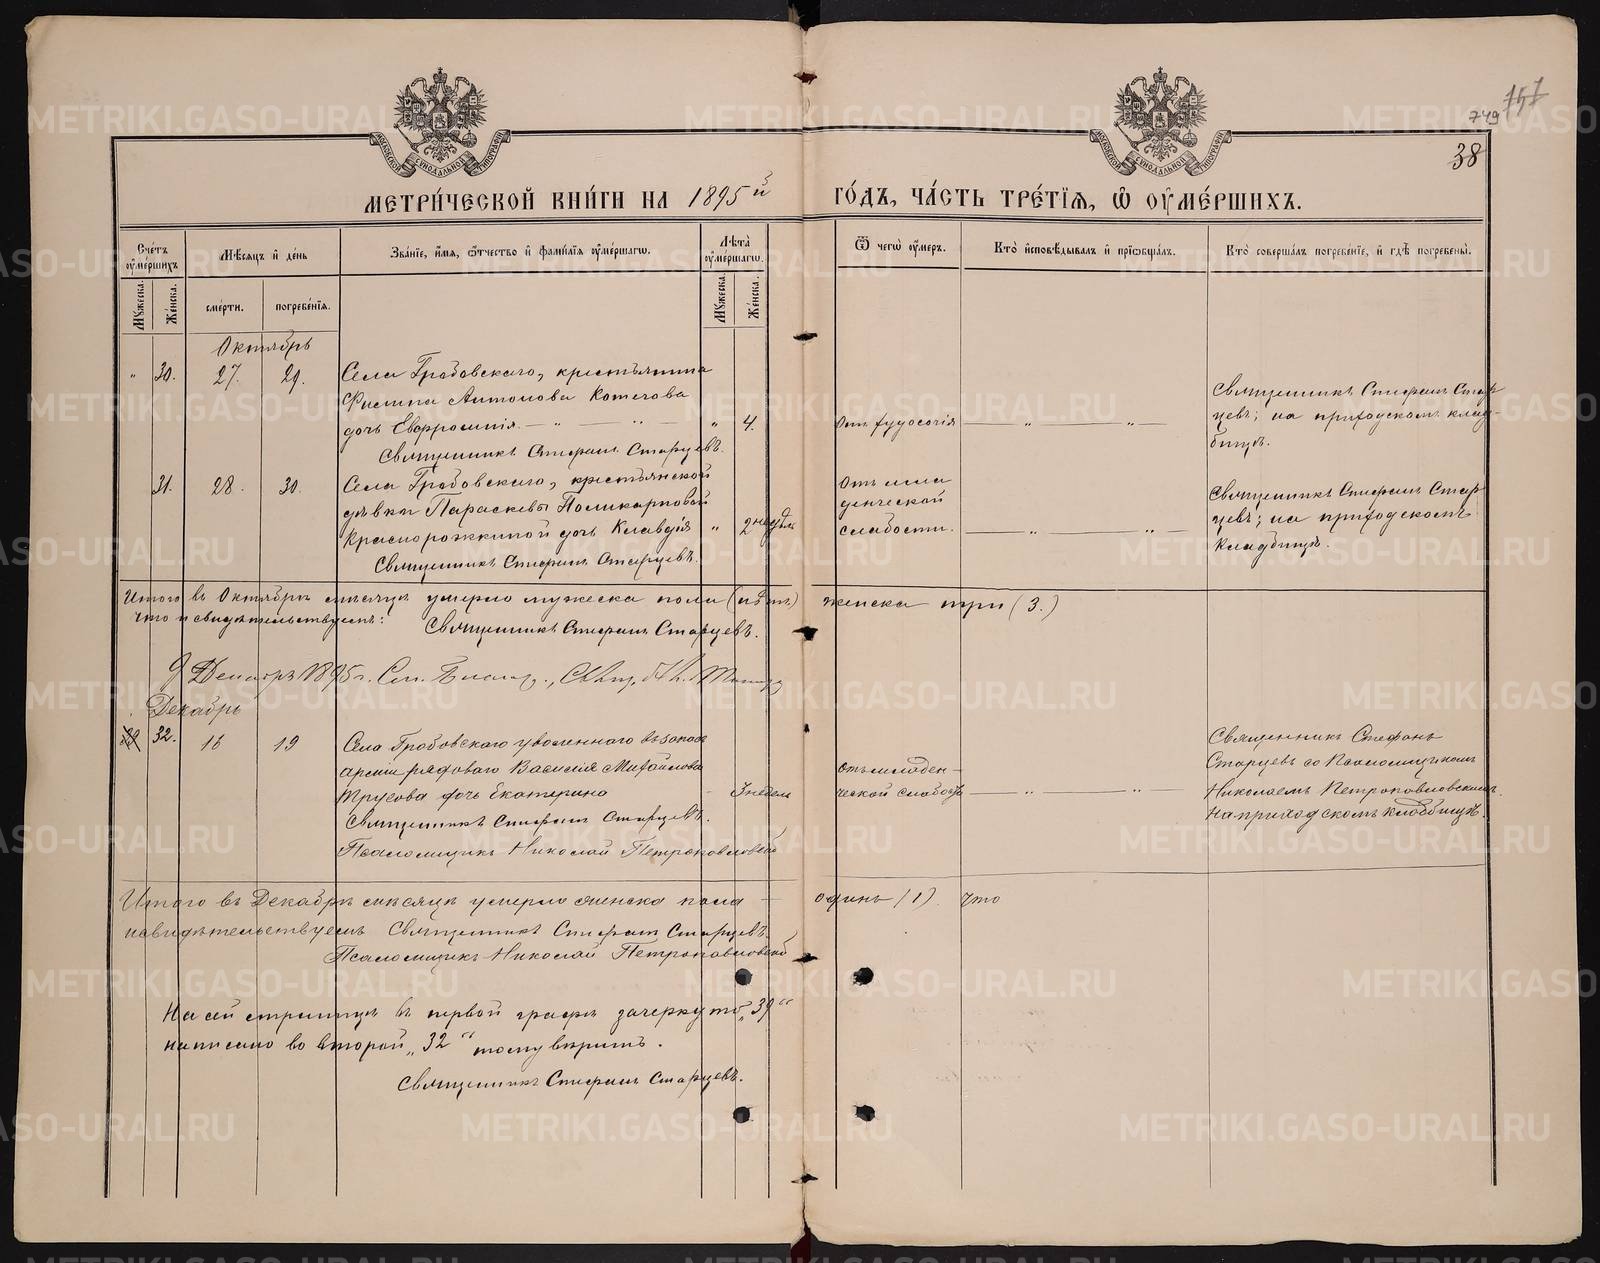 749 757
38
МОСКОВСКОЙ СѴНОДАЛЬНОЙ ТИПОГРАФІИ
МОСКОВСКОЙ СѴНОДАЛЬНОЙ ТИПОГРАФІИ
МЕТРИ́ЧЕСКОЙ КНИ́ГИ НА 1895й ГО́ДЪ, ЧА́СТЬ ТРЕ́ТЇѦ, Ѡ҆ ОУ҆МЕ́РШИХЪ.
Сче́тъ оу҆ме́ршихъ
Мꙋ́жеска.
Же́нска.
Мѣ́сѧцъ и҆ де́нь
сме́рти.
погребе́нїѧ.
Зва́нїе, и҆́мѧ, ѻ҆́тчество и҆ фами́лїѧ оу҆ме́ршагѡ.
Лѣ́та оу҆ме́ршагѡ.
Мꙋ́жеска.
Же́нска.
Ѿ чегѡ̀ оу҆́меръ.
Кто̀ и҆сповѣ́дывалъ и҆ прїѡбща́лъ.
Кто̀ соверша́лъ погребе́нїе, и҆ гдѣ̀ погребены̀.
Октябрь
" 30. 27. 29. Села Гробовскаго, крестьянина
Филипа Антонова Котегова
дочь Евфросинія — " — " — " 4. Отъ худосочія — " — " —
Священникъ Стефанъ Старцевъ.
Священникъ Стефанъ Стар
цевъ; на приходскомъ клад-
бищѣ.
31. 28. 30. Села Гробовскаго, крестьянской
дѣвки Параскевы Поликарповой
Краснорожкиной дочь Клавдія " 2 недѣль
Священникъ Стефанъ Старцевъ.
Отъ мла
денческой
слабости. — " — " —
Священникъ Стефанъ Стар
цевъ; на приходскомъ
кладбищѣ.
Итого въ Октябрѣ мѣсяцѣ умерло мужеска пола (нѣтъ) женска три (3.)
Что и свидѣтельствуемъ: Священникъ Стефанъ Старцевъ.
9 Декабря 1895 г.
Декабрь
39 32. 18 19 Села Гробовскаго уволеннаго въ запас
арміи рядоваго Василія Михайлова
Трусова дочь Екатерина 3 недѣль
Священникъ Стефанъ Старцевъ.
Псаломщикъ Николай Петропавловскій
Отъ младен-
ческой слабости — " — " —
Священникъ Стефанъ
Старцевъ со Псаломщикомъ
Николаемъ Петропавловскимъ.
На приходскомъ кладбищѣ.
Итого въ Декабрѣ мѣсяцѣ умерло женска пола — одинъ (1). что
и свидѣтельствуемъ Священникъ Стефанъ Старцевъ.
Псаломщикъ Николай Петропавловскій
На сей страницѣ въ первой графѣ зачеркнуто „39“
написано во второй „32“ тому вѣрить.
Священникъ Стефанъ Старцевъ.
METRIKI.GASO-URAL.RU